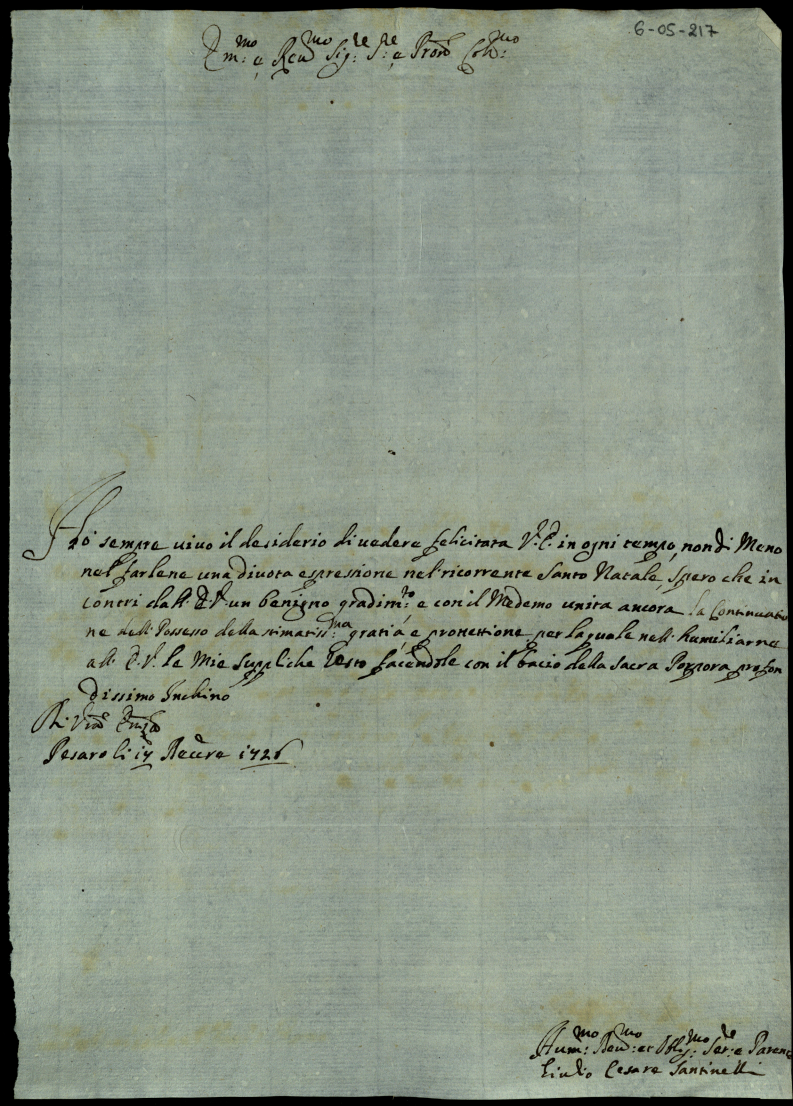 6-05-217
Em:mo e Rev:mo Sig:re S:re e Pron Col:mo
Ho sempre vivo il desiderio di vedere felicitata V.E. in ogni tempo, nondi Meno
nel farlene una divota espressione nel ricorrente Santo Natale, spero che in
contri dall' E.V. un benigno gradim:to e con il Medemo unita ancora la Continuatio
ne dell' Possesso della stimatiss:ma gratia, e protettione per la quale nell' humiliarne
all' E.V. le Mie suppliche resto facendole con il bacio della Sacra Porpora profon
dissimo Inchino
Di V.ra
Pesaro li 17 Xbre 1726
Hum:mo Dev:mo et Obl:mo Ser:re e Paren
Giulio Cesare Santinelli